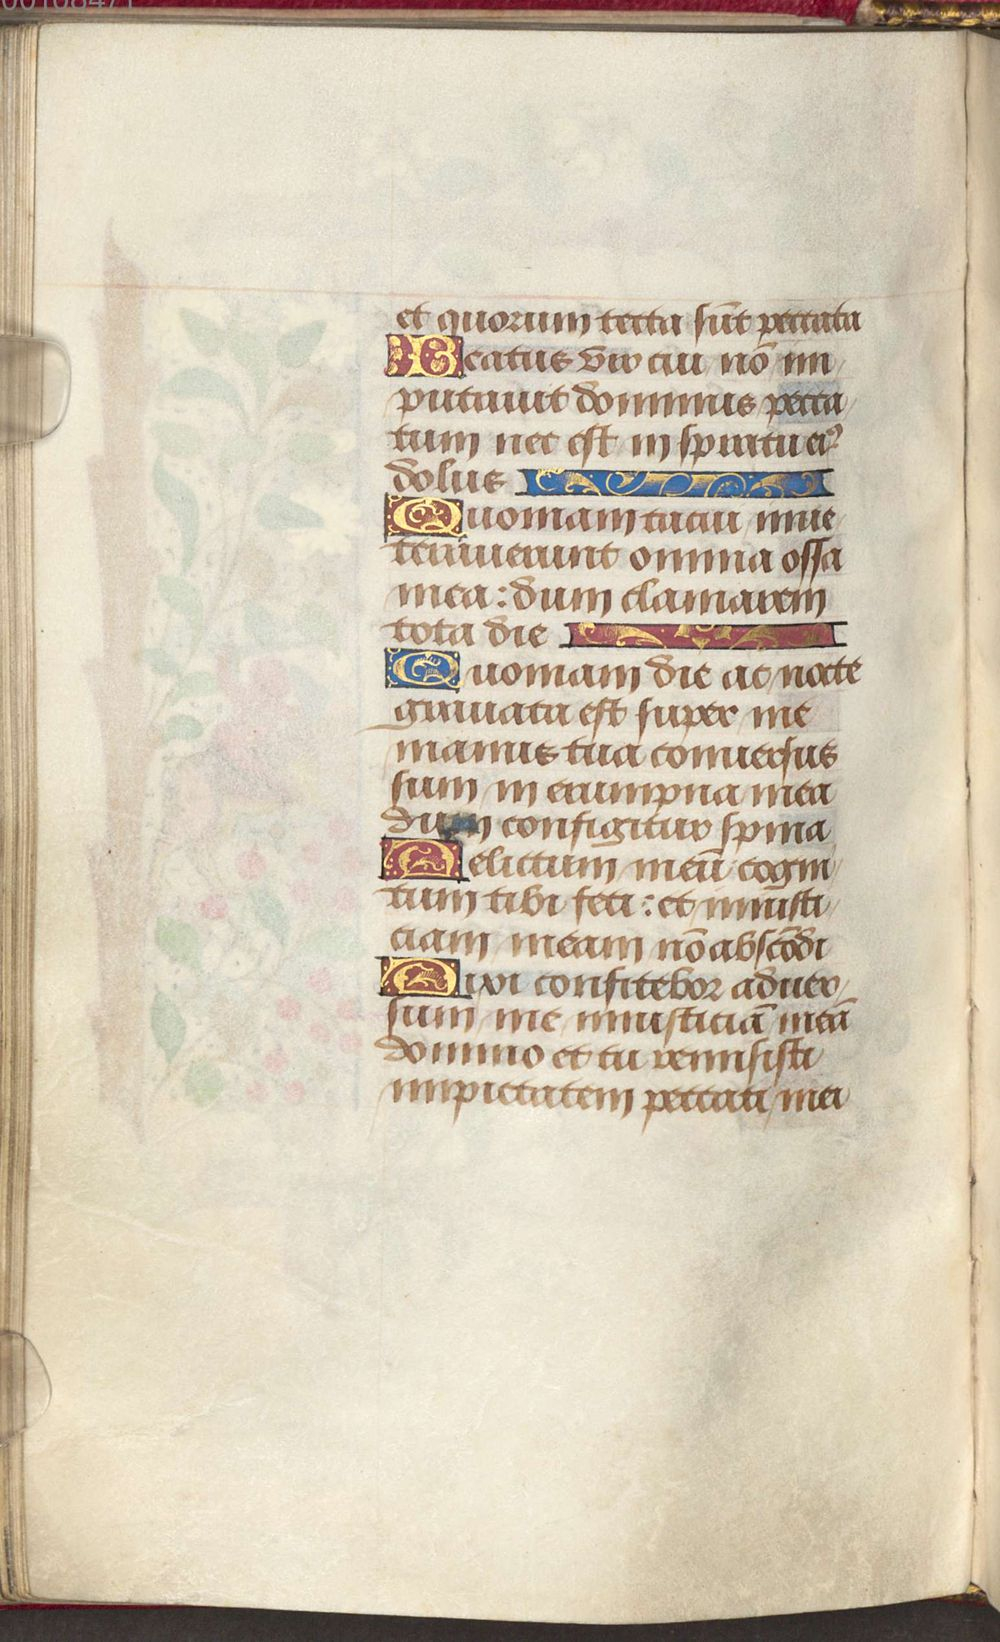 et quorum tecta sūt peccata
Beatus vir cui nō im
putavit dominus pecca
tum nec est in spiritu eiꝰ
dolus
Quoniam tacui inve
teraverunt omnia ossa
mea: dum clamarem
tota die
Quoniam die ac nocte
gravata est super me
manus tua conversus
sum in erumpna mea
dum configitur spina
Delictum meū cogni
tum tibi feci: et iniusti
ciam meam nō abscōdi
Dixi confitebor adver
sum me iniusticiā meā
domino et tu remisisti
impietatem peccati mei